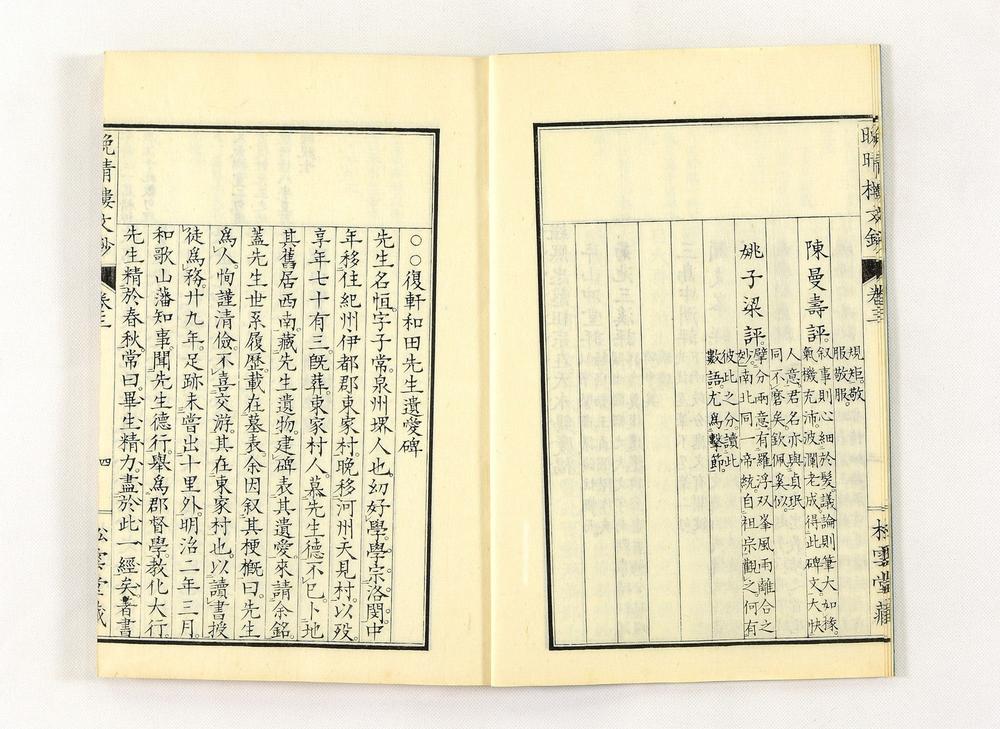 晩晴樓文鈔
卷三
松雲堂藏
規矩。敬
服敬服
陳曼壽評。叙事則心細於髮。議論則筆大如椽。
氣機充沛。波瀾老成。得此碑文。大快
人意。君名亦與貞珉
同不磨矣。欽佩奚似。
姚子梁評。劈分兩意。有羅浮双峯風雨離合之
妙。南北同一帝統。自祖宗觀之。何有
彼此之分。讀此
數語。尤爲擊節。
○○復軒和田先生遺愛碑
先生名恒。字子常。泉州堺人也。幼好學。學宗洛閩。中
年移住紀州伊都郡東家村。晩移河州天見村。以歿。
享年七十有三。既葬。東家村人。慕先生德不已。卜地
其舊居西南。藏先生遺物。建碑表其遺愛。來請余銘。
蓋先生世系履歷。載在墓表。余因叙其梗概曰。先生
爲人。恂謹清儉。不喜交游。其在東家村也。以讀書授
徒爲務。廿九年。足跡未嘗出十里外。明治二年三月。
和歌山藩知事。聞先生德行。舉爲郡督學。教化大行。
先生精於春秋。常曰。畢生精力。盡於此一經矣。著書
晩晴樓文鈔
卷三
四
松雲堂藏